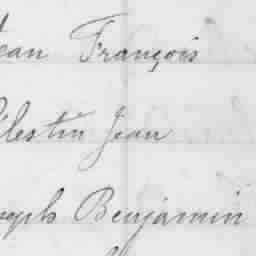 Jean François
Célestin Jean
Joseph Benjamin